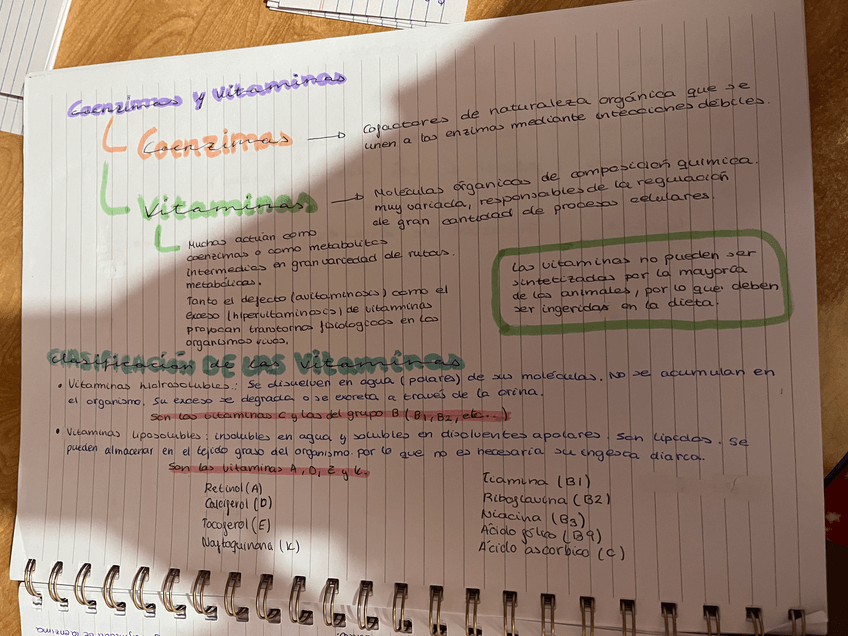 Coenzimas y Vitaminas
Coenzimas → Cofactores de naturaleza orgánica que se
unen a las enzimas mediante intecciones débiles.
Vitaminas → Moléculas órganicas de composición química
muy variada, responsables de la regulación
de gran cantidad de procesos celulares.
Muchas actúan como
coenzimas o como metabolitos
intermedios en gran variedad de rutas
metabólicas.
Tanto el defecto (avitaminosis) como el
exceso (hipervitaminosis) de vitaminas
provocan transtornos fisiologicos en los
organismos vivos.
Las vitaminas no pueden ser
sintetizadas por la mayoría
de los animales, por lo que deben
ser ingeridas en la dieta.
Clasificación DE LAS Vitaminas
• Vitaminas hidrosolubles: Se disuelven en agua (polares) de sus moléculas. No se acumulan en
el organismo. Su exceso se degrada o se excreta a través de la orina.
Son las vitaminas C y las del grupo B (B1, B2, etc...)
• Vitaminas liposolubles: insolubles en agua y solubles en disolventes apolares. Son lípidos. Se
pueden almacenar en el tejido graso del organismo por lo que no es necesaria su ingesta diaria.
Son las vitaminas A, D, E y K.
Retinol (A)
Calciferol (D)
Tocoferol (E)
Naftoquinona (K)
Tiamina (B1)
Riboflavina (B2)
Niacina (B3)
Ácido fólico (B9)
Ácido ascorbico (C)